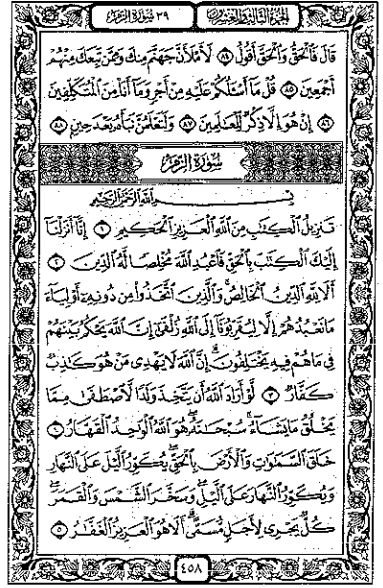 الجزء الثالث والعشرون ٣٩ سورة الزمر
قَالَ فَالْحَقُّ وَالْحَقَّ أَقُولُ ٨٤ لَأَمْلَأَنَّ جَهَنَّمَ مِنكَ وَمِمَّن تَبِعَكَ مِنْهُمْ
أَجْمَعِينَ ٨٥ قُلْ مَا أَسْئَلُكُمْ عَلَيْهِ مِنْ أَجْرٍ وَمَا أَنَا مِنَ الْمُتَكَلِّفِينَ
٨٦ إِنْ هُوَ إِلَّا ذِكْرٌ لِّلْعَالَمِينَ ٨٧ وَلَتَعْلَمُنَّ نَبَأَهُ بَعْدَ حِينٍ ٨٨
سُورَةُ الزُّمَرِ
بِسْمِ اللَّهِ الرَّحْمَٰنِ الرَّحِيمِ
تَنزِيلُ الْكِتَٰبِ مِنَ اللَّهِ الْعَزِيزِ الْحَكِيمِ ١ إِنَّا أَنزَلْنَا
إِلَيْكَ الْكِتَٰبَ بِالْحَقِّ فَاعْبُدِ اللَّهَ مُخْلِصًا لَّهُ الدِّينَ ٢
أَلَا لِلَّهِ الدِّينُ الْخَالِصُ وَالَّذِينَ اتَّخَذُوا مِن دُونِهِ أَوْلِيَاءَ
مَا نَعْبُدُهُمْ إِلَّا لِيُقَرِّبُونَا إِلَى اللَّهِ زُلْفَىٰ إِنَّ اللَّهَ يَحْكُمُ بَيْنَهُمْ
فِي مَا هُمْ فِيهِ يَخْتَلِفُونَ إِنَّ اللَّهَ لَا يَهْدِي مَنْ هُوَ كَٰذِبٌ
كَفَّارٌ ٣ لَّوْ أَرَادَ اللَّهُ أَن يَتَّخِذَ وَلَدًا لَّاصْطَفَىٰ مِمَّا
يَخْلُقُ مَا يَشَاءُ سُبْحَٰنَهُ هُوَ اللَّهُ الْوَٰحِدُ الْقَهَّارُ ٤
خَلَقَ السَّمَٰوَٰتِ وَالْأَرْضَ بِالْحَقِّ يُكَوِّرُ الَّيْلَ عَلَى النَّهَارِ
وَيُكَوِّرُ النَّهَارَ عَلَى الَّيْلِ وَسَخَّرَ الشَّمْسَ وَالْقَمَرَ
كُلٌّ يَجْرِي لِأَجَلٍ مُّسَمًّى أَلَا هُوَ الْعَزِيزُ الْغَفَّٰرُ ٥
٤٥٨